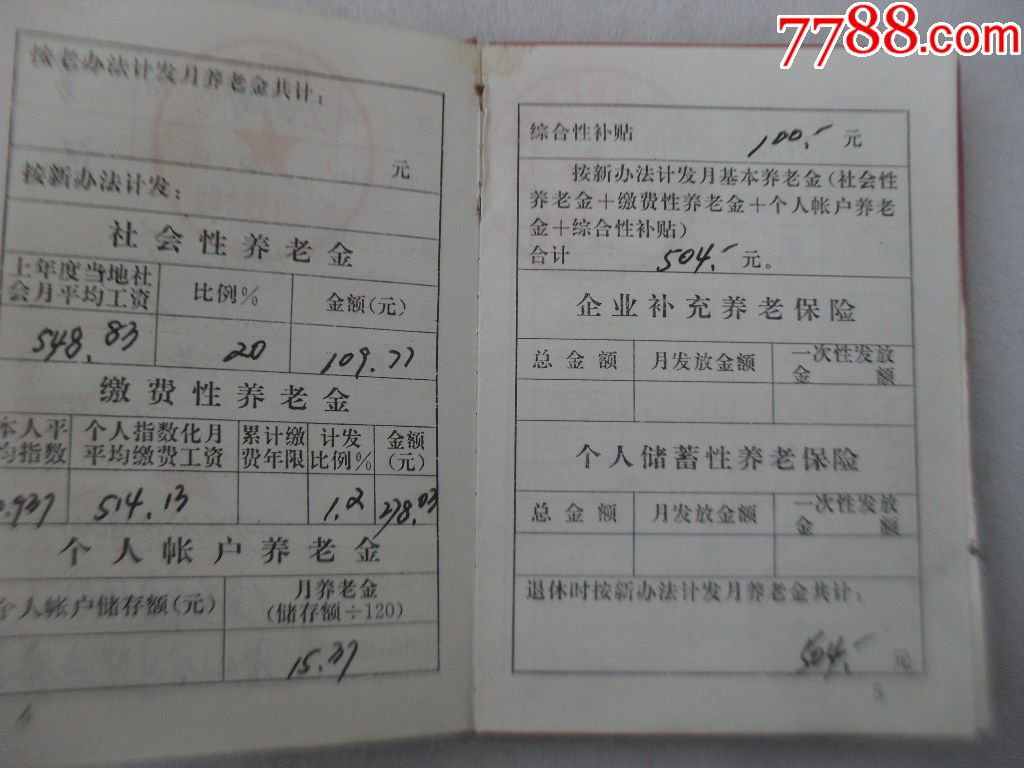 7788.com
按老办法计发月养老金共计：
元
按新办法计发：
社会性养老金
上年度当地社会月平均工资 比例% 金额(元)
548.83 20 109.77
缴费性养老金
本人平均指数 个人指数化月平均缴费工资 累计缴费年限 计发比例% 金额(元)
0.937 514.13 1.2 278.03
个人帐户养老金
个人帐户储存额(元) 月养老金(储存额÷120)
15.37
4
综合性补贴 100.- 元
按新办法计发月基本养老金(社会性
养老金＋缴费性养老金＋个人帐户养老
金＋综合性补贴)
合计 504.- 元。
企业补充养老保险
总金额 月发放金额 一次性发放金额
个人储蓄性养老保险
总金额 月发放金额 一次性发放金额
退休时按新办法计发月养老金共计：
504.- 元
5